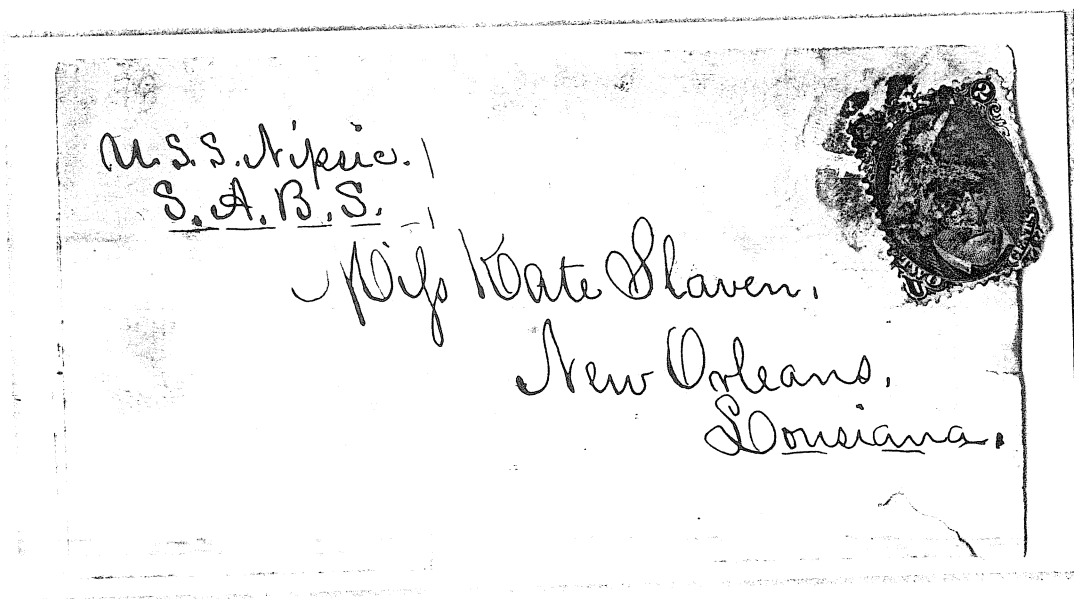 U.S.S. Nipsic.
S.A.B.S.
Miss Kate Slaven.
New Orleans.
Lousiana.